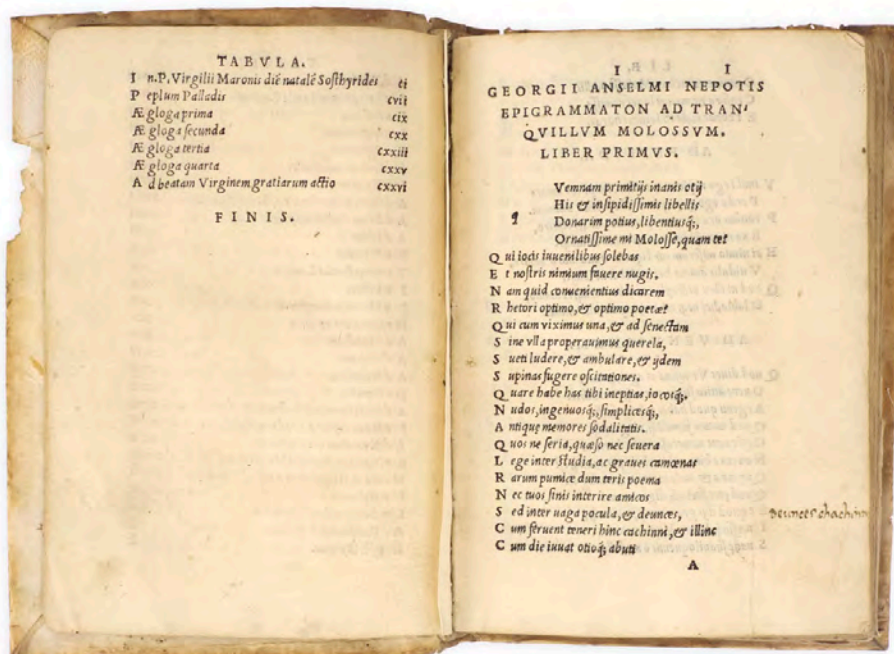 TABVLA.
I n.P. Virgilii Maronis diē natalē Sosthyrides ci
P eplum Palladis cvii
Æ gloga prima cix
Æ gloga secunda cxx
Æ gloga tertia cxxiii
Æ gloga quarta cxxv
A d beatam Virginem gratiarum actio cxxvi
FINIS.
I I
GEORGII ANSELMI NEPOTIS
EPIGRAMMATON AD TRAN,
QVILLVM MOLOSSVM.
LIBER PRIMVS.
q Vemnam primitijs inanis otij
His & insipidissimis libellis
Donarim potius, libentiusq;,
Ornatissime mi Molosse, quam te?
Q ui iocis iuuenilibus solebas
E t nostris nimium fauere nugis.
N am quid conuenientius dicarem
R hetori optimo, & optimo poetæ?
Q ui cum viximus una, & ad senectam
S ine vlla properauimus querela,
S ueti ludere, & ambulare, & ijdem
S upinas fugere oscitationes.
Q uare habe has tibi ineptias, iocosq;.
N udos, ingenuosq;, simplicesq;,
A ntiquę memores sodalitatis.
Q uos ne seria, quæso nec seuera
L ege inter studia, ac graues camœnas
R arum pumice dum teris poema
N ec tuos sinis interire amicos
S ed inter uaga pocula, & deunces,
C um feruent teneri hinc cachinni, & illinc
C um die iuuat otioq; abuti
A